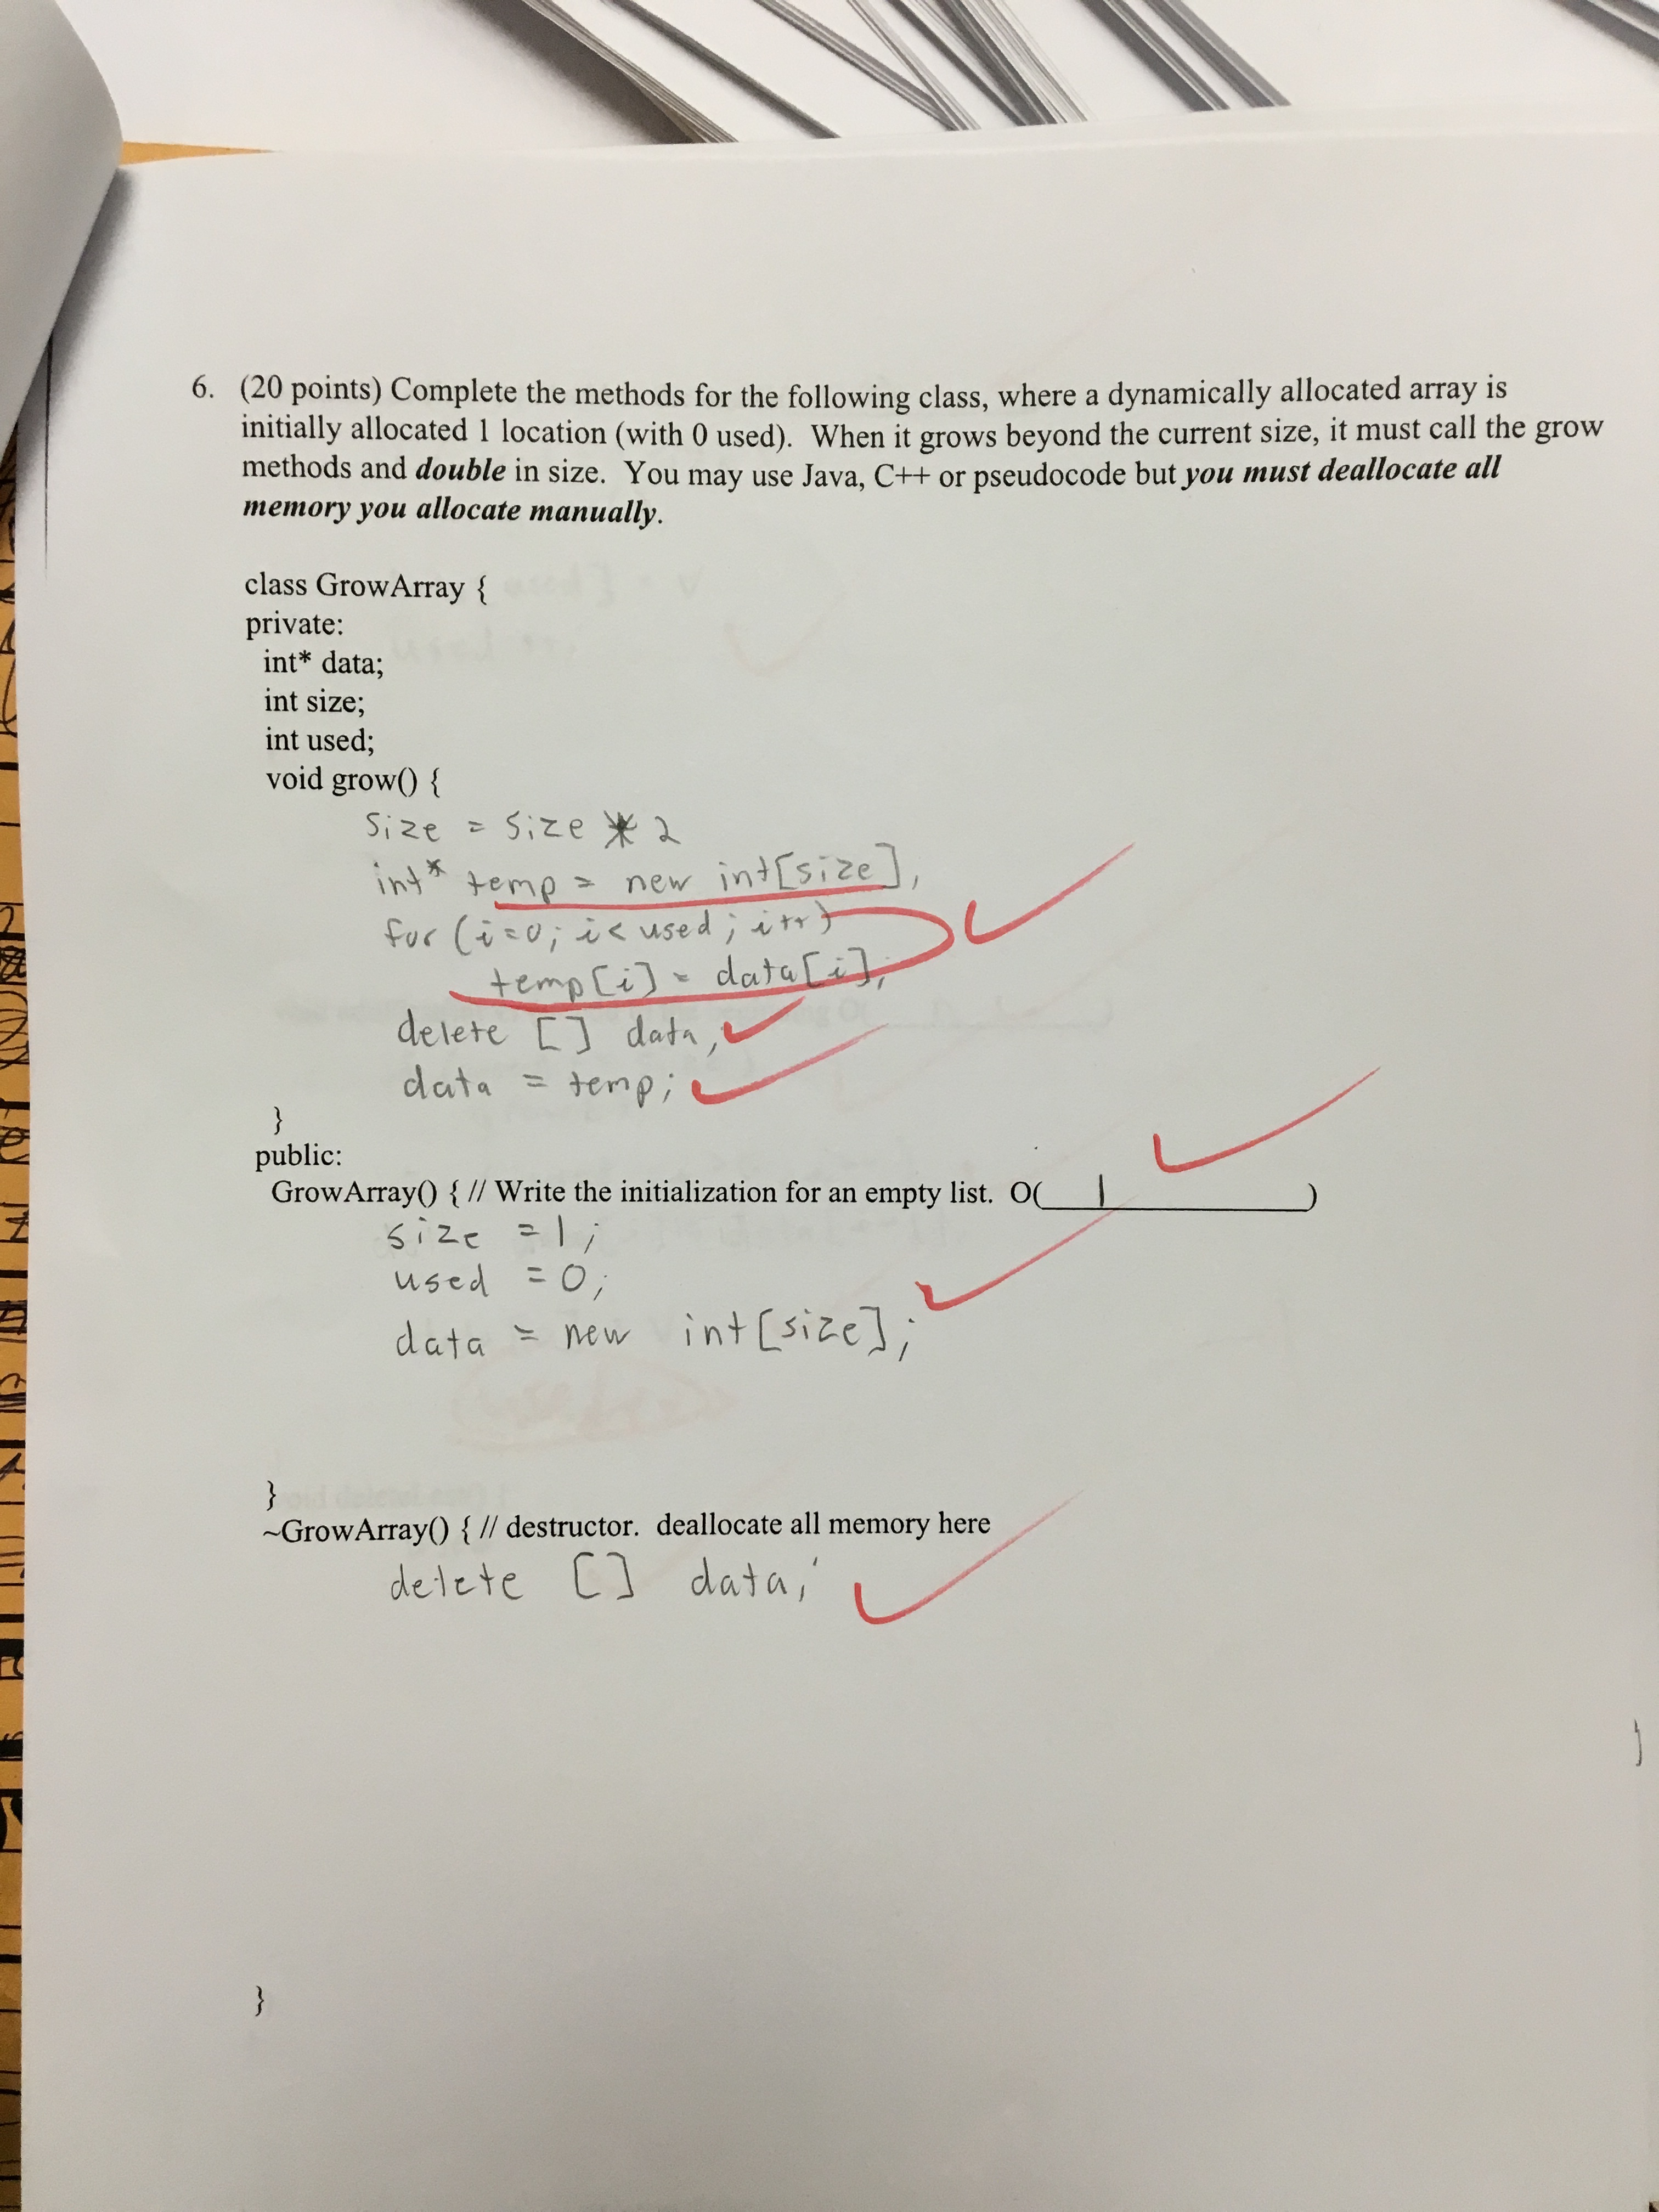 6. (20 points) Complete the methods for the following class, where a dynamically allocated array is
initially allocated 1 location (with 0 used). When it grows beyond the current size, it must call the grow
methods and double in size. You may use Java, C++ or pseudocode but you must deallocate all
memory you allocate manually.
class GrowArray {
private:
int* data;
int size;
int used;
void grow() {
size = size * 2
int* temp = new int[size],
for (i=0; i< used; i++)
temp[i] = data[i];
delete [] data,
data = temp;
}
public:
GrowArray() { // Write the initialization for an empty list. O(____1____)
size = 1;
used = 0;
data = new int[size];
}
~GrowArray() { // destructor. deallocate all memory here
delete [] data;
}